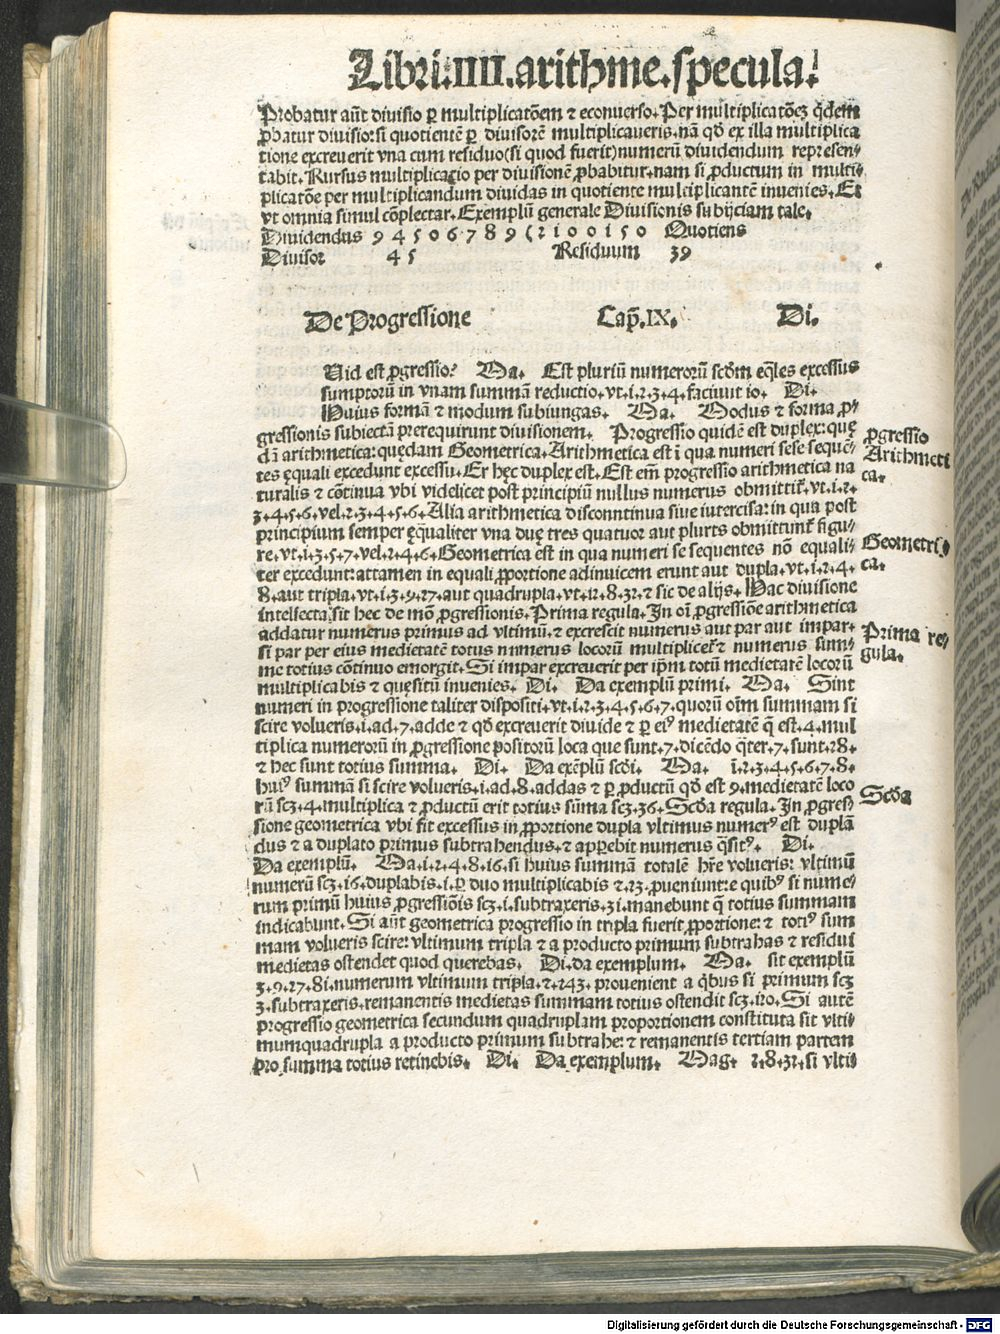 Libri.IIII.arithme.specula.
Probatur aūt divisio ꝑ multiplicatōem ⁊ econuerso.Per multiplicatōeꝫ q̇dem
ꝓbatur divisio:si quotientē ꝑ divisorē multiplicaueris.nā qđ ex illa multiplica
tione excreuerit vna cum residuo(si quod fuerit)numerū dividendum represen-
tabit.Rursus multiplicatio per divisionē ꝓbabitur.nam si ꝓductum in multi-
plicatōe per multiplicandum dividas in quotiente multiplicantē invenies.Et
vt omnia simul cōplectar.Exemplū generale Divisionis subijciam tale.
Dividendus 9 4 5 0 6 7 8 9 (2 1 0 0 1 5 0 Quotiens
Divisor 4 5 Residuum 39
De Progressione Cap̄.IX. Di.
Uid est ꝓgressio? Ma. Est pluriū numerorū scđm eq̄les excessus
sumptorū in vnam summā reductio.vt.1.2.3.4.faciunt 10. Di.
Huius formā ⁊ modum subiungas. Ma. Modus ⁊ forma ꝓ-
gressionis subiectā prerequirunt divisionem. Progressio quidē est duplex:quę
dā arithmetica:quędam Geometrica.Arithmetica est ī qua numeri sese sequē-
tes ęquali excedunt excessu.Et hęc duplex est.Est em̄ progressio arithmetica na
turalis ⁊ cōtinua vbi videlicet post principiū nullus numerus obmittit᷑.vt.1.2.
3.4.5.6.vel.2.3.4.5.6.Alia arithmetica discontinua siue intercisa:in qua post
principium semper ęqualiter vna duę tres quatuor aut plures obmittunt᷑ figu-
re.vt.1.3.5.7.vel.2.4.6.Geometrica est in qua numeri se sequentes nō equali-
ter excedunt:attamen in equali ꝓportione adinuicem erunt aut dupla.vt.1.2.4.
8.aut tripla.vt.1.3.9.27.aut quadrupla.vt.12.8.32.⁊ sic de alijs.Hac divisione
intellecta sit hec de mō ꝓgressionis.Prima regula.In oī ꝓgressiōe arithmetica
addatur numerus primus ad vltimū.⁊ excrescit numerus aut par aut impar.
si par per eius medietatē totus numerus locorū multiplicet᷑ ⁊ numerus sum-
me totius cōtinuo emorgit.Si impar excreuerit per ip̄m totū medietatē locorū
multiplicabis ⁊ quęsitū invenies. Di. Da exemplū primi. Ma. Sint
numeri in progressione taliter dispositi.vt.1.2.3.4.5.6.7.quorū oīm summam si
scire volueris.1.ad.7.adde ⁊ qđ excreuerit divide ⁊ ꝑ eiꝰ medietatē q̄ est.4.mul
tiplica numerorū in ꝓgressione positorū loca que sunt.7.dicēdo q̄ter.7.sunt.28.
⁊ hec sunt totius summa. Di. Da exēplū scđi. Ma. 1.2.3.4.5.6.7.8.
huiꝰ summā si scire volueris.1.ad.8.addas ⁊ ꝑ ꝓductū qđ est 9.medietatē loco
rū scꝫ.4.multiplica ⁊ ꝓductū erit totius sūma scꝫ.36.Scđa regula.In ꝓgres-
sione geometrica vbi fit excessus in ꝓportione dupla vltimus numerꝰ est duplā
dus ⁊ a duplato primus subtrahendus.⁊ apꝑebit numerus q̄sitꝰ. Di.
Da exemplū. Ma.1.2.4.8.16.si huius summā totalē hr̄e volueris: vltimū
numerū scꝫ.16.duplabis.i.ꝑ duo multiplicabis ⁊.23.ꝓueniunt:e quibꝰ si nume-
rum primū huius ꝓgressiōis scꝫ.1.subtraxeris.31.manebunt q̄ totius summam
indicabunt.Si aūt geometrica progressio in tripla fuerit ꝓportione:⁊ totiꝰ sum
mam volueris scire:vltimum tripla ⁊ a producto primum subtrahas ⁊ residui
medietas ostendet quod querebas. Di.da exemplum. Ma. sit exemplū
3.9.27.81.numerum vltimum tripla.⁊.243.provenient a q̇bus si primum scꝫ
3.subtraxeris.remanentis medietas summam totius ostendit scꝫ.120.Si autē
progressio geometrica secundum quadruplam proportionem constituta sit vlti-
mumquadrupla a producto primum subtrahe:⁊ remanentis tertiam partem
pro summa totius retinebis. Di. Da exemplum. Mag. 2.8.32.si vlti
ꝓgressio
Arithmeti
ca.
Geometri
ca.
Prima re-
gula.
Scđa
Digitalisierung gefördert durch die Deutsche Forschungsgemeinschaft - DFG